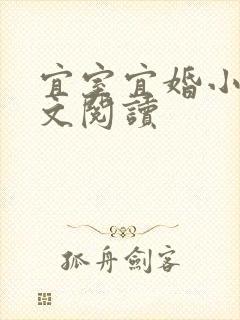 宜室宜婚小
文閱讀
孤舟劍客